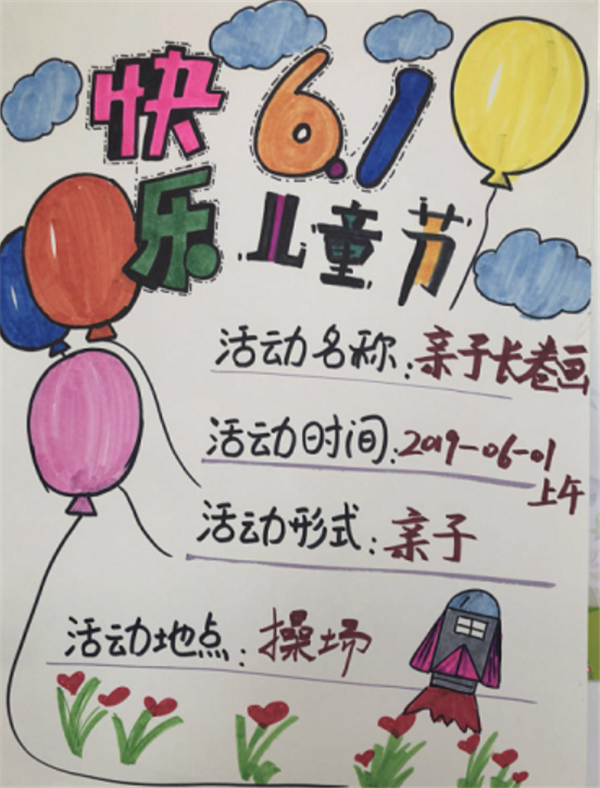 快乐 6.1
儿童节
活动名称：亲子长卷画
活动时间：2019-06-01
上午
活动形式：亲子
活动地点：操场